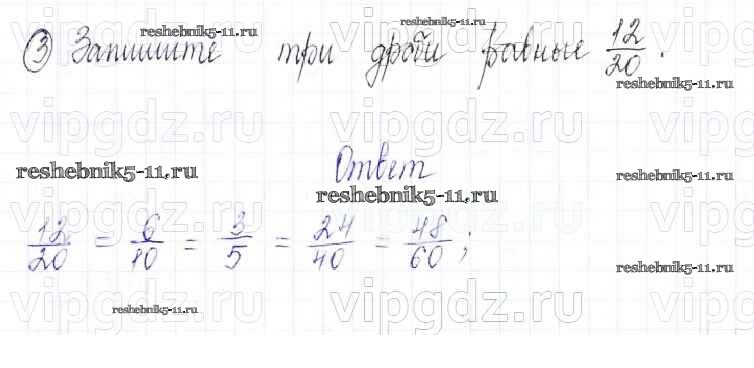 reshebnik5-11.ru
reshebnik5-11.ru
③ Запишите три дроби равные 12/20.
reshebnik5-11.ru
vipgdz.ru vipgdz.ru vipgdz.ru
Ответ
reshebnik5-11.ru
reshebnik5-11.ru
reshebnik5-11.ru
12/20 = 6/10 = 3/5 = 24/40 = 48/60;
reshebnik5-11.ru
reshebnik5-11.ru
vipgdz.ru vipgdz.ru vipgdz.ru